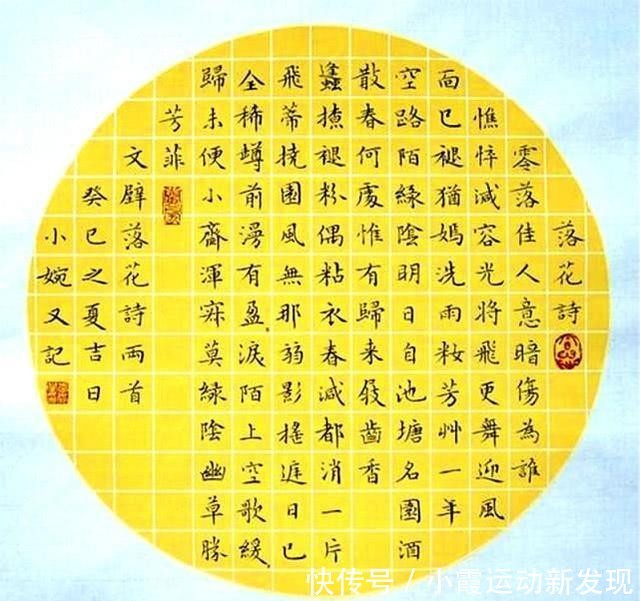 落花詩
零落佳人意暗傷為誰
憔悴減容光將飛更舞迎風
面已褪猶嫣洗雨籹芳艸一年
空路陌緑陰明日自池塘名園酒
散春何處惟有歸来發齒香
蠭撩褪粉偶粘衣春減都消一片
飛蒂撓園風無那弱影搖遲日已
全稀罇前漫有盈淚陌上空歌緩
歸未便小齋渾寂莫緑陰幽草勝
芳菲
文壁落花詩兩首
癸巳之夏吉日
小婉又記
快传号／小霞运动新发现